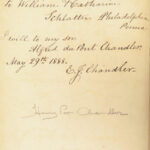 To William Nathaniel
Schlatter Philadelphia
Penna
I will to my son
Alfred du Pont Chandler.
May 29th 1888.
E. J. Chandler.
Henry P Chandler